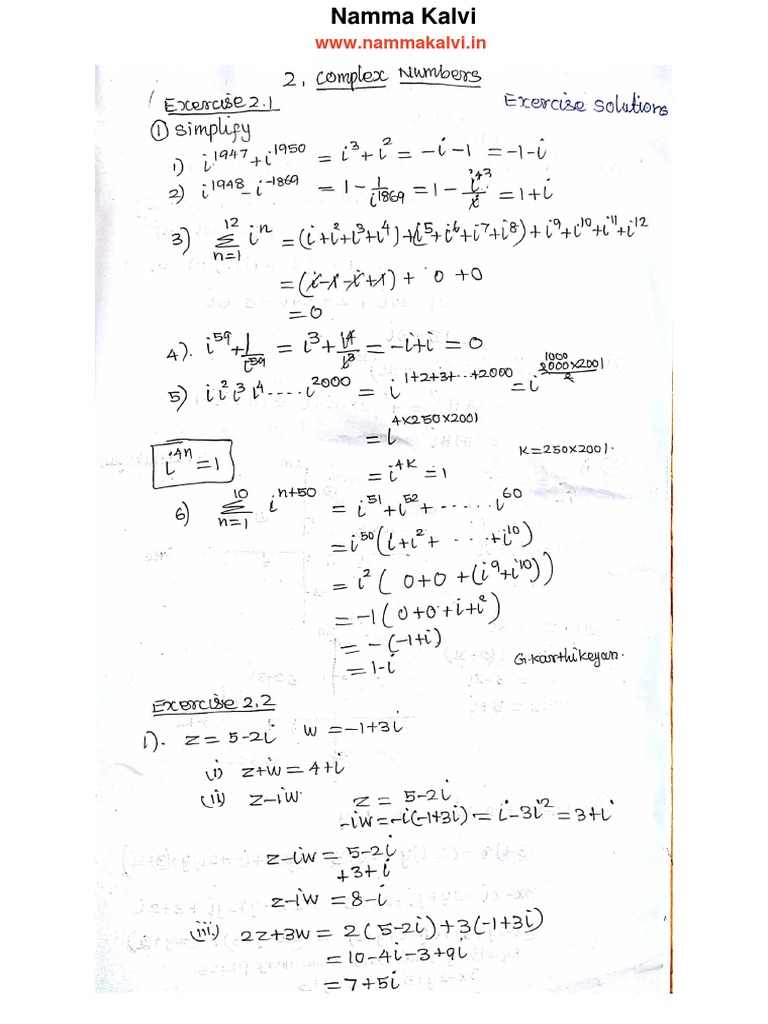 Namma Kalvi
www.nammakalvi.in
2. Complex Numbers
Exercise 2.1
Exercise Solutions
① Simplify
1) i^1947 + i^1950 = i^3 + i^2 = -i - 1 = -1 - i
2) i^1948 - i^-1869 = 1 - 1/i^1869 = 1 - i^4 3/i = 1 + i
3) 12 Σ n=1 i^n = (i+i^2+i^3+i^4) + (i^5+i^6+i^7+i^8) + i^9+i^10+i^11+i^12
= (i-1-i+1) + 0 + 0
= 0
4). i^59 + 1/i^59 = i^3 + i^4/i^3 = -i+i = 0
5) i i^2 i^3 i^4 .... i^2000 = i^1+2+3+...+2000 = i^1000 2000×2001/2
= i^4×250×2001
K=250×2001.
i^4n = 1
= i^4K = 1
6) 10 Σ n=1 i^n+50 = i^51 + i^52 + ...... i^60
= i^50 (i+i^2+ ....+i^10)
= i^2 ( 0+0 + (i^9+i^10))
= -1 ( 0+0+i+i^2)
= -(-1+i)
= 1-i
G.Karthikeyan.
Exercise 2.2
1). z = 5-2i w = -1+3i
(i) z+w = 4+i
(ii) z-iw. z = 5-2i
-iw = -i(-1+3i) = i-3i^2 = 3+i
z-iw = 5-2i
+3+i
z-iw = 8-i
(iii) 2z+3w = 2(5-2i)+3(-1+3i)
= 10-4i-3+9i
= 7+5i